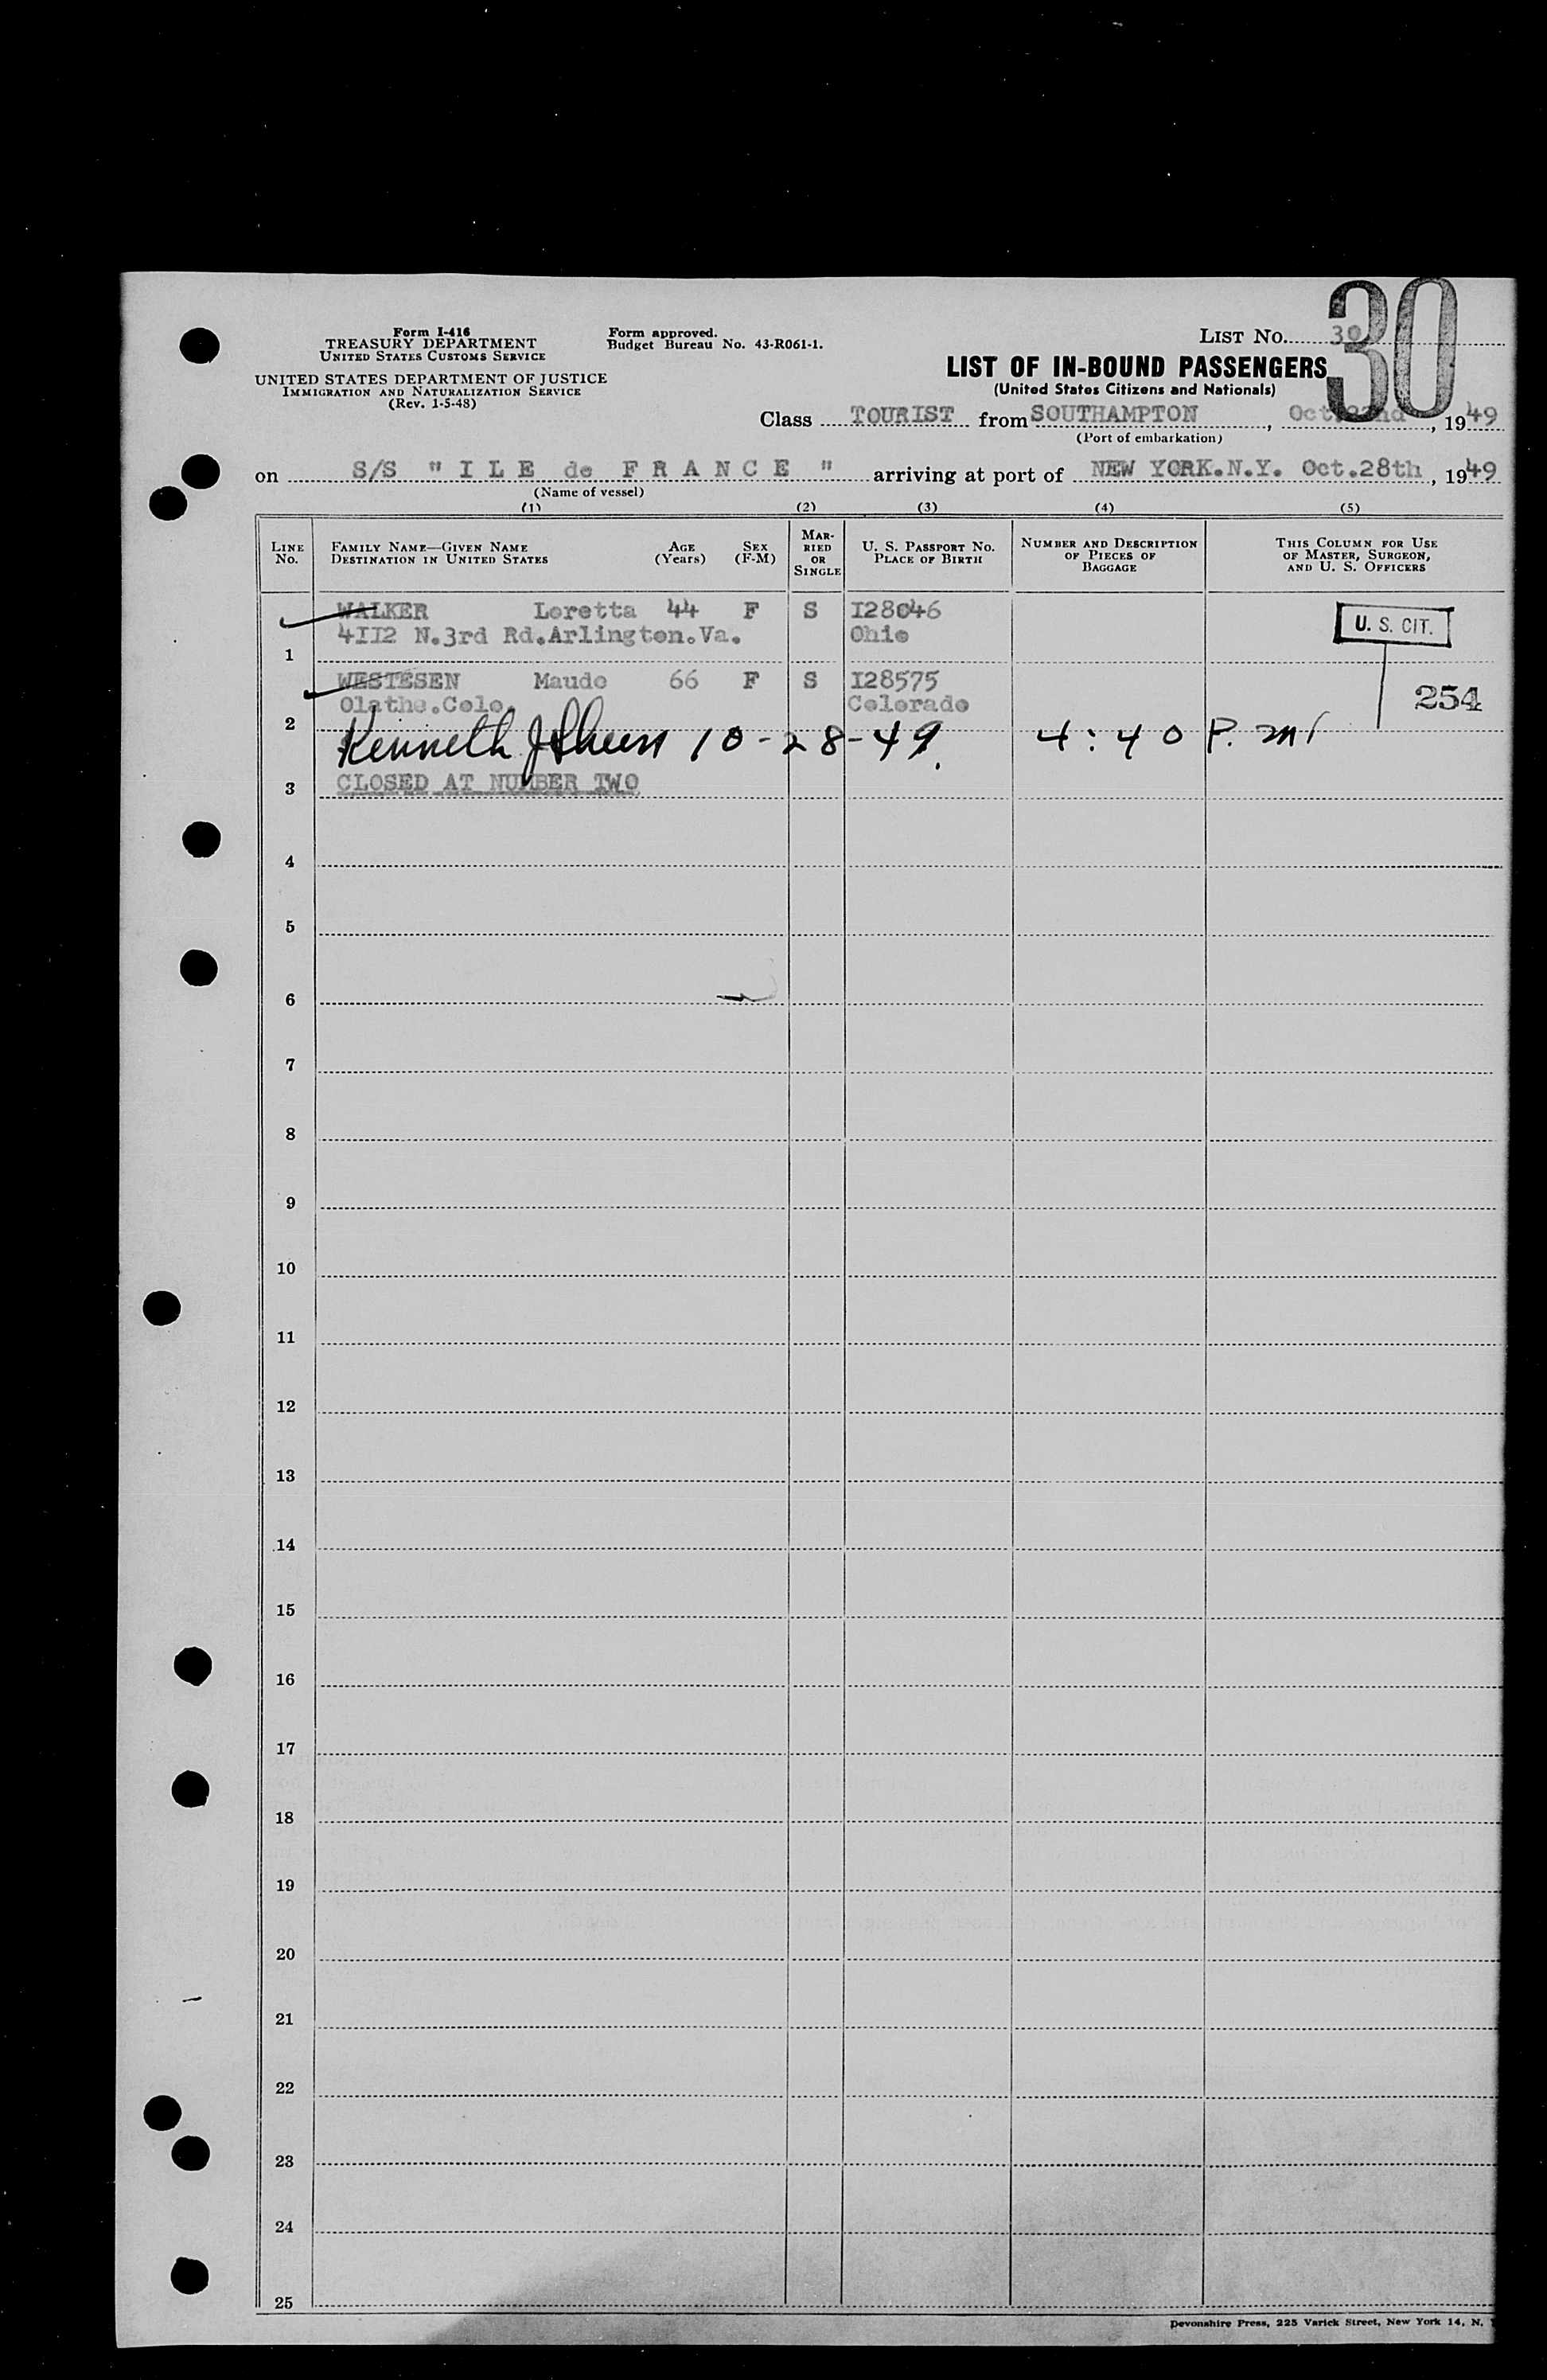 30
Form I-416
TREASURY DEPARTMENT
UNITED STATES CUSTOMS SERVICE
UNITED STATES DEPARTMENT OF JUSTICE
IMMIGRATION AND NATURALIZATION SERVICE
(Rev. 1-5-48)
Form approved.
Budget Bureau No. 43-R061-1.
LIST No. 30
LIST OF IN-BOUND PASSENGERS
(United States Citizens and Nationals)
Class TOURIST from SOUTHAMPTON, Oct.22nd, 1949
(Port of embarkation)
on S/S " I L E de F R A N C E " arriving at port of NEW YORK.N.Y. Oct.28th, 1949
(Name of vessel)
(1) (2) (3) (4) (5)
LINE No. FAMILY NAME—GIVEN NAME DESTINATION IN UNITED STATES AGE (Years) SEX (F-M) MARRIED OR SINGLE U. S. PASSPORT No. PLACE OF BIRTH NUMBER AND DESCRIPTION OF PIECES OF BAGGAGE THIS COLUMN FOR USE OF MASTER, SURGEON, AND U. S. OFFICERS
WALKER Loretta 44 F S I28046
4II2 N.3rd Rd.Arlington.Va. Ohio U. S. CIT.
1
WESTESEN Maude 66 F S I28575
Olathe.Colo. Colorado 254
2
Kenneth J 10-28-49. 4:40 P.m
CLOSED AT NUMBER TWO
3
4
5
6
7
8
9
10
11
12
13
14
15
16
17
18
19
20
21
22
23
24
25
Devonshire Press, 225 Varick Street, New York 14, N.